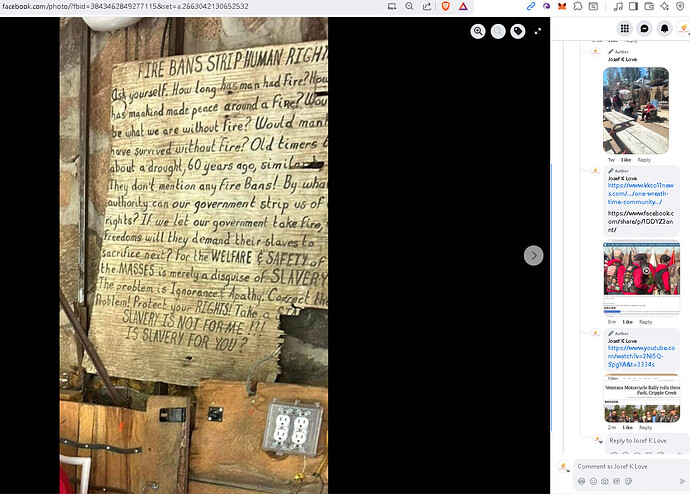 facebook.com/photo/?fbid=3843462849277115&set=a.2663042130652532
FIRE BANS STRIP HUMAN RIGHT
Ask yourself. How long has man had Fire? How
has mankind made peace around a Fire? Wou
be what we are without Fire? Would man
have survived without Fire? Old timers t
about a drought, 60 years ago, similar
They don't mention any Fire Bans! By wha
authority can our government strip us of
rights? If we let our government take Fire,
Freedoms will they demand their slaves to
sacrifice next? For the WELFARE & SAFETY of
the MASSES is merely a disguise of SLAVERY
The problem is Ignorance & Apathy. Correct the
Problem! Protect your RIGHTS! Take a
SLAVERY IS NOT FOR ME !!!
IS SLAVERY FOR YOU?
Author
Josef K Love
1w Like Reply
Author
Josef K Love
https://www.kkco11new
s.com/.../one-wreath-
time-community.../
https://www.facebook.c
om/share/p/1DDYZ2an
nt/
8m Like Reply
Author
Josef K Love
https://www.youtube.co
m/watch?v=2NI5Q-
SpgYA&t=3334s
Veterans Motorcycle Rally rolls thro
Park, Cripple Creek
2m Like Reply
Reply to Josef K Love
Comment as Josef K Love